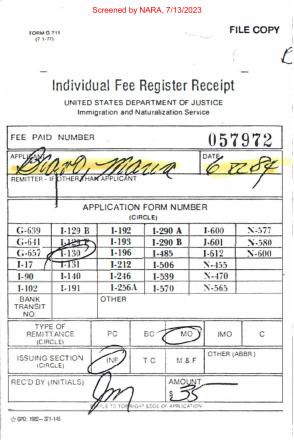 Screened by NARA, 7/13/2023
FORM G 711
(7 1-77)
FILE COPY
Individual Fee Register Receipt
UNITED STATES DEPARTMENT OF JUSTICE
Immigration and Naturalization Service
FEE PAID NUMBER 057972
APPLICANT DATE
Maria
REMITTER - IF OTHER THAN APPLICANT
APPLICATION FORM NUMBER
(CIRCLE)
G-639 I-129 B I-192 I-290 A I-600 N-577
G-641 I-129 F I-193 I-290 B I-601 N-580
G-657 I-130 I-196 I-485 I-612 N-600
I-17 I-131 I-212 I-506 N-455
I-90 I-140 I-246 I-539 N-470
I-102 I-191 I-256A I-570 N-565
BANK TRANSIT NO. OTHER
TYPE OF REMITTANCE (CIRCLE) PC BC MO IMO C
ISSUING SECTION (CIRCLE) INF T C M & F OTHER (ABBR)
REC'D BY (INITIALS) AMOUNT
$ 35
TO RIGHT EDGE OF APPLICATION